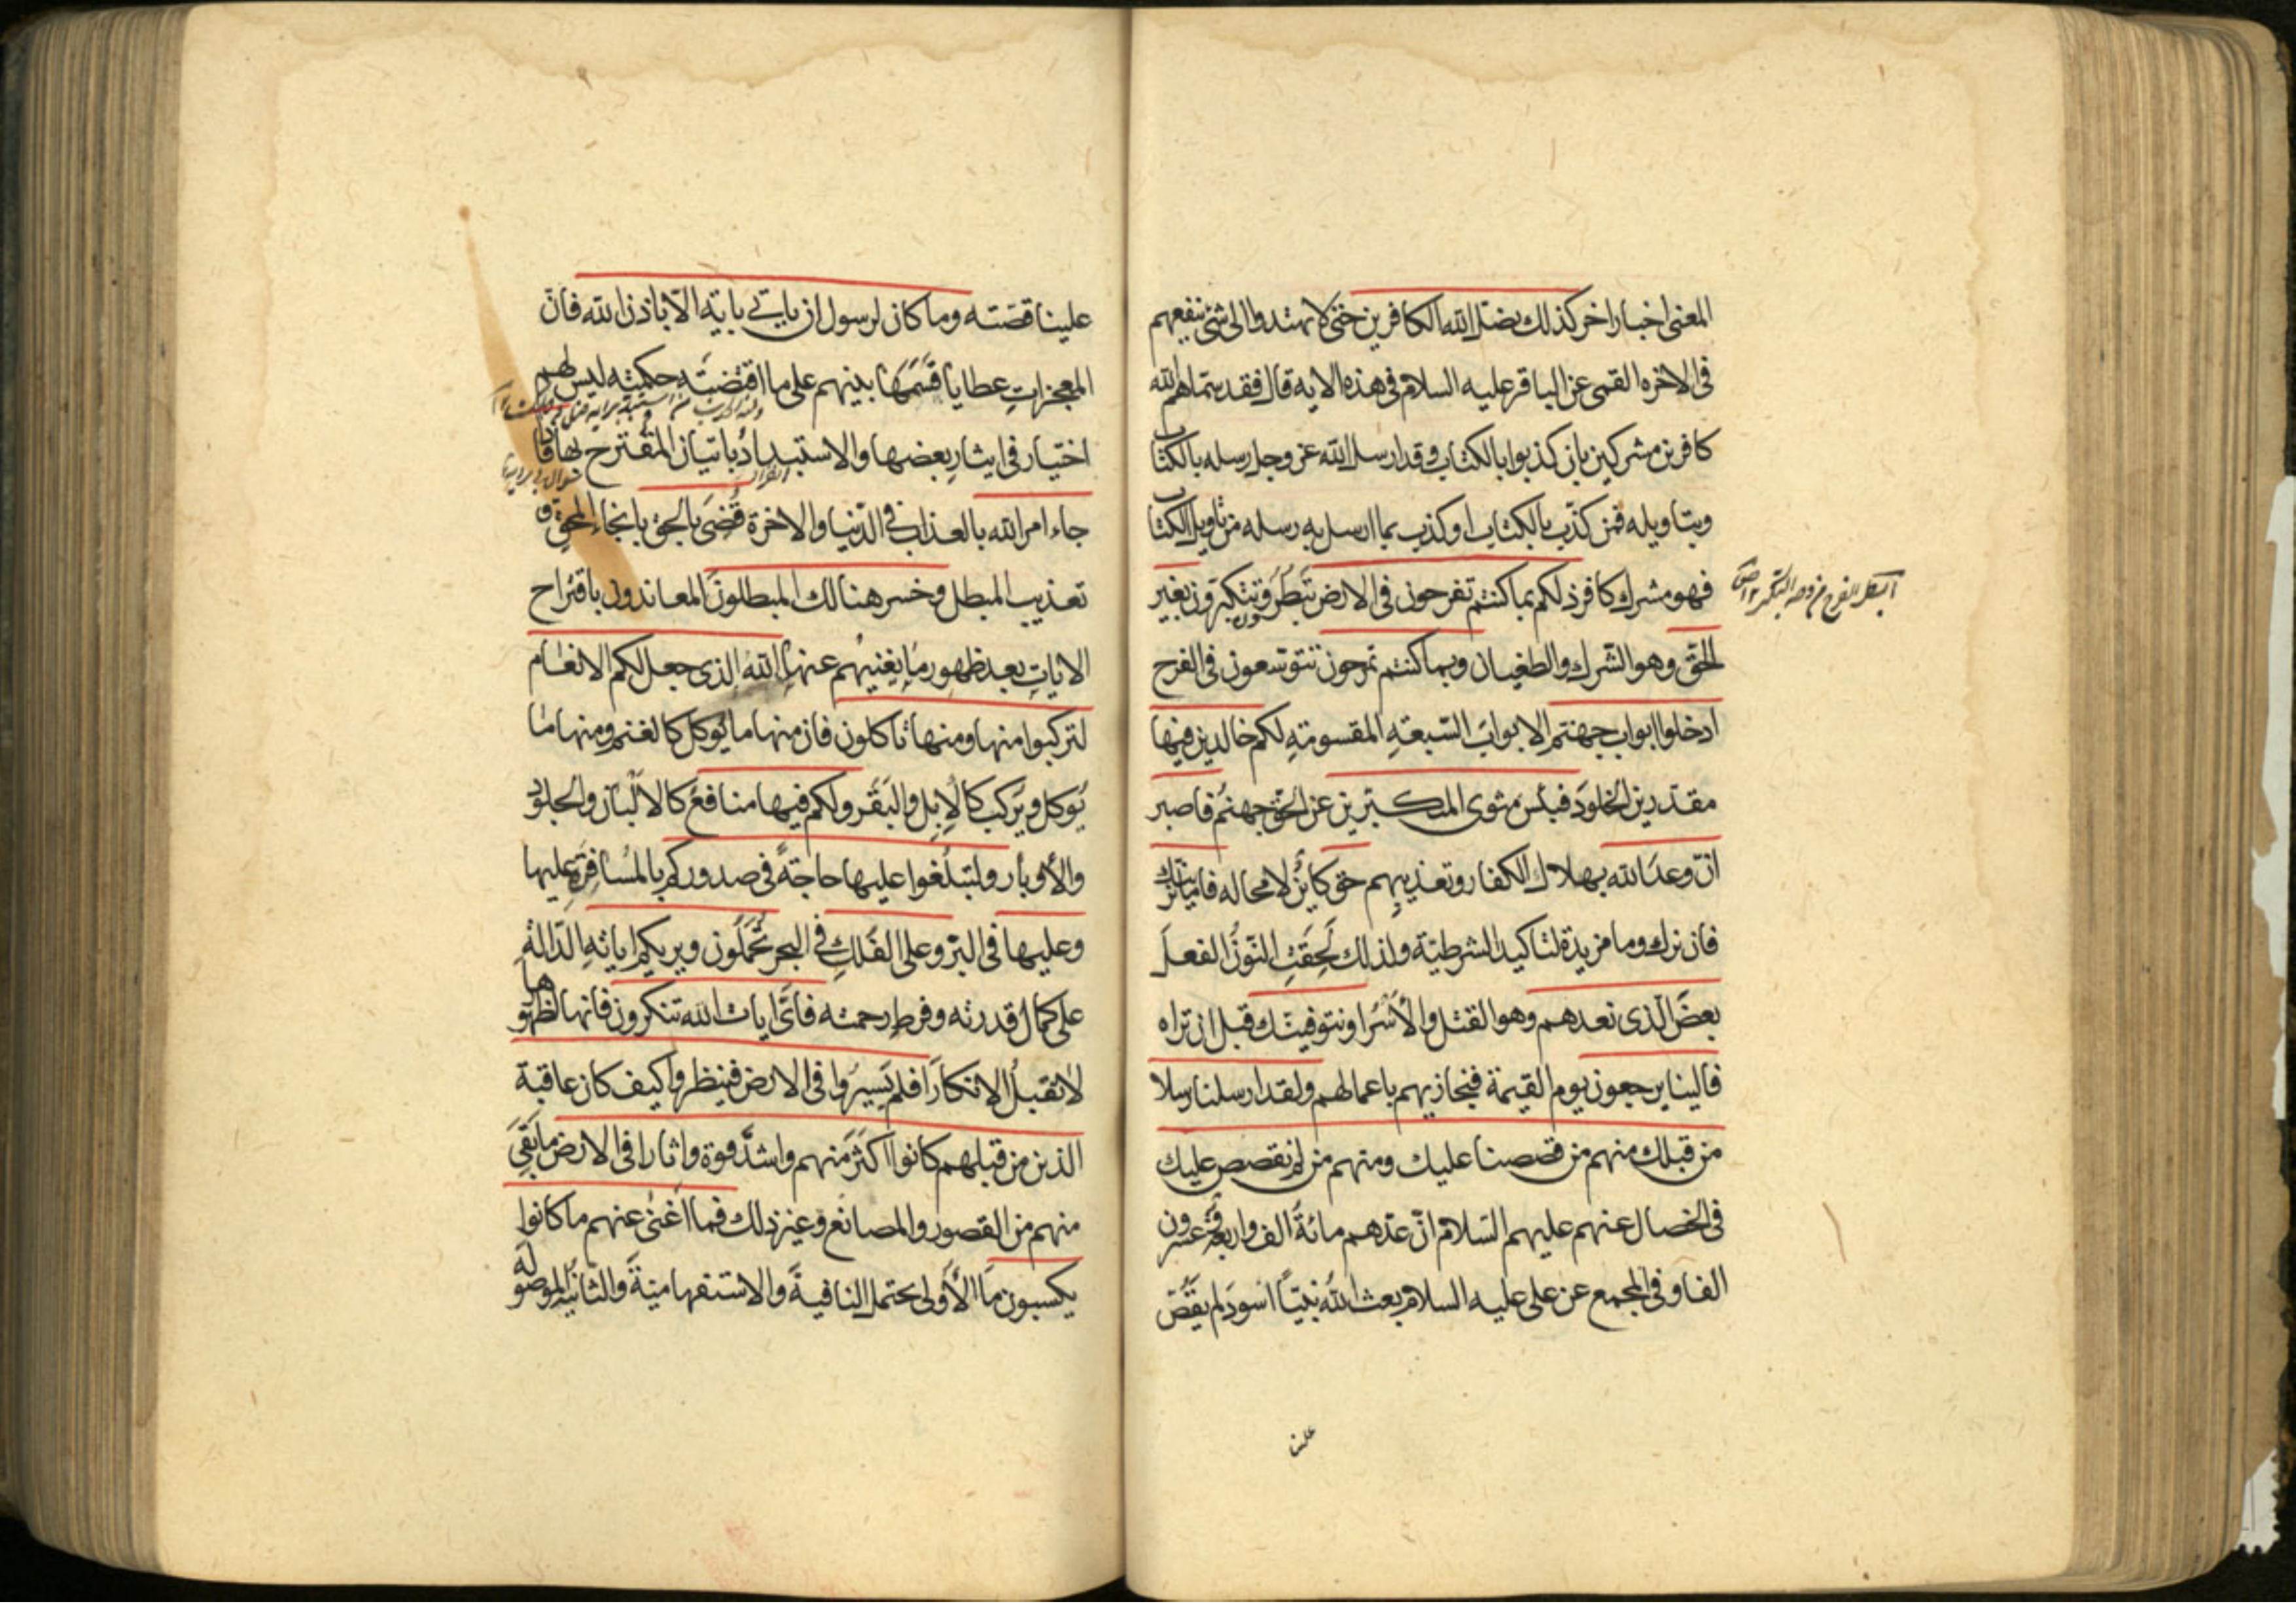 المعنى اخبارا اخر كذلك يضل الله الكافرين حتى لا يهتدوا الى شئ ينفعهم
فى الاخره القمى عن الباقر عليه السلام فى هذه الايه قال فقد سماهم الله
كافرين مشركين بان كذبوا بالكتاب وقد ارسل الله عز وجل رسله بالكتاب
وبتاويله فمن كذّب بالكتاب او كذب بما ارسل به رسله من تاويل الكتاب
فهو مشرك كافر ذلكم بما كنتم تفرحون فى الارض تبطرون وتتكبّرون بغير
الحقّ وهو الشّرك والطغيان وبما كنتم تمرحون تتوسّعون فى الفرح
ادخلوا ابواب جهنّم الابوابَ السّبعةِ المقسومةِ لكم خالدين فيها
مقدّرين الخلودَ فبئس مثوى المتكبّرين عن الحقّ جهنّمُ فاصبر
انّ وعدَ الله بهلاك الكفار وتعذيبِهم حق كائنٌ لا محاله فامّا نرينّك
فان نرك وما مزيدة لتاكيد الشرطيّة ولذلك لَحِقَتِ النّونُ الفعلَ
بعضَ الّذى نعدهم وهو القتل والأسْرُ او نتوفينّك قبل ان تراه
فالينا يرجعون يوم القيمة فنجازيهم باعمالهم ولقد ارسلنا رسلا
من قبلك منهم من قصصنا عليك ومنهم من لم نقصص عليك
فى الخصال عنهم عليهم السّلام انّ عدّهم مائةُ الف واربعة وعشرون
الفا وفى المجمع عن على عليه السلام بعث اللهُ نبيّاً اسودَ لم يقصّ
علينا
علينا قصّته وما كان لرسول ان ياتى باية الّا باذن الله فانّ
المعجزاتِ عطايا قسّمَها بينهم على ما اقتضته حكمته ليس لهم
اختيار فى ايثارِ بعضها والاستبداد باتيان المقترح بها فاذا
جاء امر الله بالعذاب فى الدّنيا والاخرة قُضِىَ بالحق بانجاء المحقّ و
تعذيب المبطل وخسر هنالك المبطلونَ المعاندون باقتراح
الاياتِ بعد ظهور ما يغنيهُم عنها اللهُ الذى جعل لكم الانعام
لتركبوا منها ومنها تاكلون فان منها ما يُوكل كالغنم ومنها ما
يُوكل ويُركب كالإبِلِ والبَقَر ولكم فيها منافعُ كالألْبان والجلود
والأوبار ولتبلُغوا عليها حاجةً فى صدوركم بالمُسافرَةِ عليها
وعليها فى البرّ وعلى الفُلكِ فى البحر تُحْمَلُون ويريكم اياتهِ الدّالةَ
على كمال قدرته وفرطِ رحمته فاىَّ ايات الله تنكرون فانها لظهورها
لا تقبلُ الانكارَ افلم يَسيرُوا فى الارض فينظروا كيف كان عاقبة
الذين من قبلهم كانوا اكثرَ منهم واشدَّ قوة واثارا فى الارض ما بَقِىَ
منهم من القصور والمصانع وغيرِ ذلك فما اغنىٰ عنهم ما كانوا
يكسبون مَا الأولى يحتمل النافيةَ والاستفهاميّةَ والثّانيةُ الموصولةَ